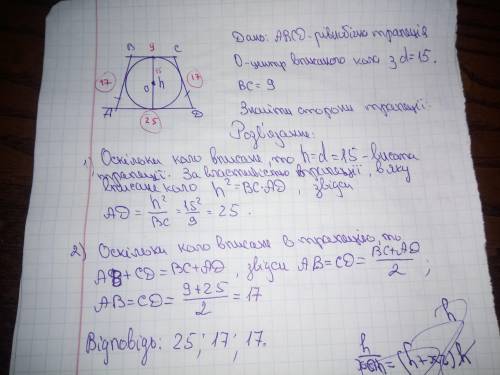 B 9 C
17 15 17
O h
A 25 D
Дано: ABCD-рівнобічна трапеція
O-центр вписаного кола з d=15.
BC=9
Знайти сторони трапеції.
Розв'язання:
1) Оскільки коло вписане, то h=d=15-висота
трапеції. За властивістю трапеції, в яку
вписане коло h²=BC·AD, звідси
AD = h²/BC = 15²/9 = 25.
2) Оскільки коло вписане в трапецію, то
AB+CD=BC+AD, звідси AB=CD= BC+AD/2;
AB=CD= 9+25/2 = 17
Відповідь: 25; 17; 17.